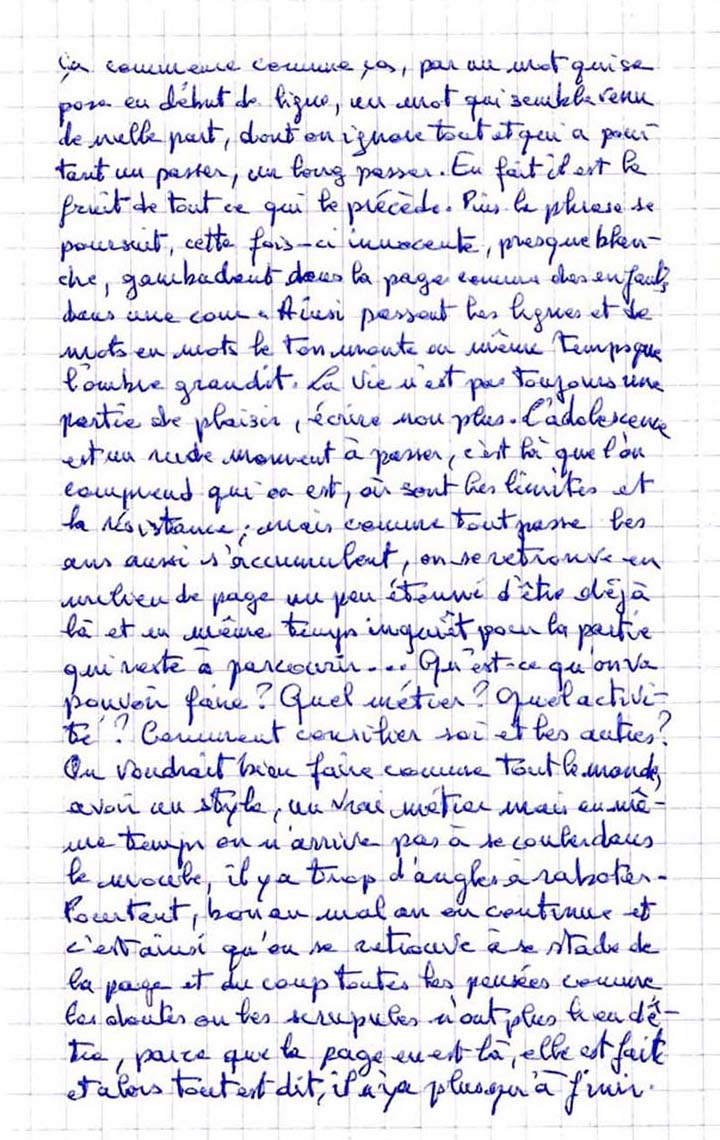 ça commence comme ça, par un mot qui se
pose en début de ligne, un mot qui semble venu
de nulle part, dont on ignore tout et qui a pour
tant un passer, un long passer. En fait il est le
fruit de tout ce qui le précède. Puis la phrase se
poursuit, cette fois-ci innocente, presque blan-
che, gambadant dans la page comme des enfants
dans une cour. Ainsi passent les lignes et de
mots en mots le ton monte en même temps que
l'ombre grandit. La vie n'est pas toujours une
partie de plaisir, écrire non plus. L'adolescence
est un rude moment à passer, c'est là que l'on
comprend qui on est, où sont les limites et
la résistance ; mais comme tout passe les
ans aussi s'accumulent, on se retrouve en
milieu de page un peu étonné d'être déjà
là et en même temps inquiet pour la partie
qui reste à parcourir... Qu'est-ce qu'on va
pouvoir faire ? Quel métier ? Quel activi-
té ? Comment concilier soi et les autres ?
On voudrait bien faire comme tout le monde,
avoir un style, un vrai métier mais en mê-
me temps on n'arrive pas à se couler dans
le moule, il y a trop d'angles à raboter.
Pourtant, bon an mal an on continue et
c'est ainsi qu'on se retrouve à se stade de
la page et du coup toutes les pensées comme
les doutes ou les scrupules n'ont plus lieu d'ê-
tre, parce que la page en est là, elle est faite
et alors tout est dit, il n'y a plus qu'à finir.